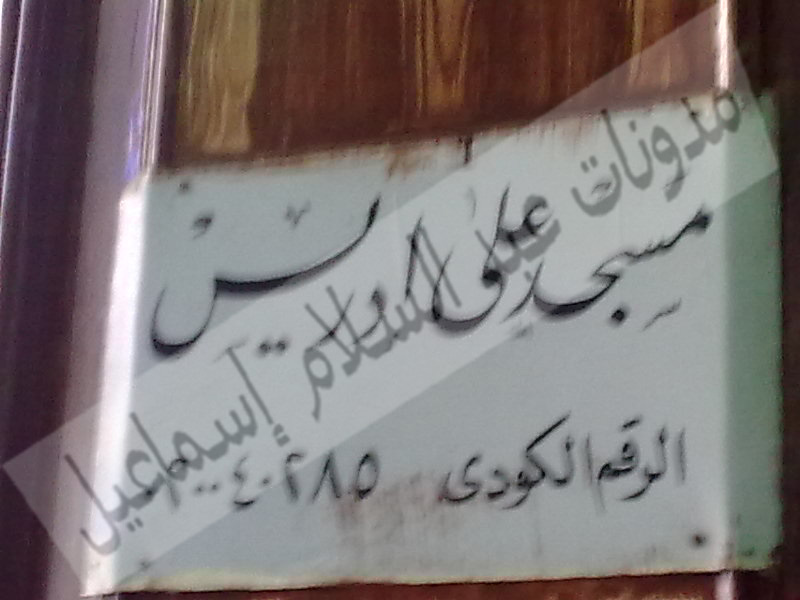 مسجد ادريس
الرقم الكودى ٢٠٠٤٠٢٨٥
مدونات عبد السلام إسماعيل